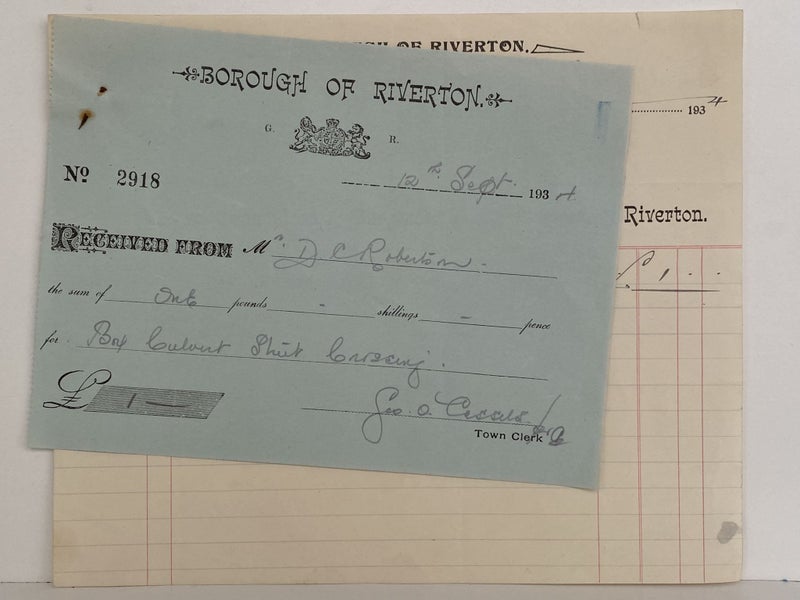 OF RIVERTON.
1934
Riverton.
£ 1 . . 
BOROUGH OF RIVERTON.
G. R.
No 2918
12th Sept. 1934
RECEIVED FROM Mr. D C Robertson
the sum of One pounds - shillings - pence
for Box Culvert Street Crossing.
£ 1 —
Geo. O. Cassels
Town Clerk